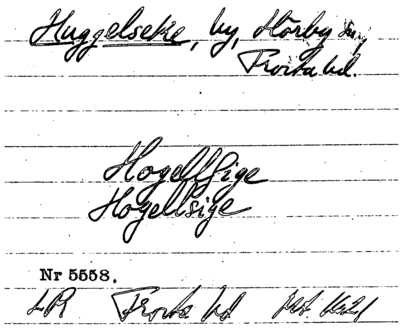 Huggelseke, by, Hörby sn,
Frosta hd.
Hogellssige
Hogellsige
Nr 5558.
LR Frosta hd